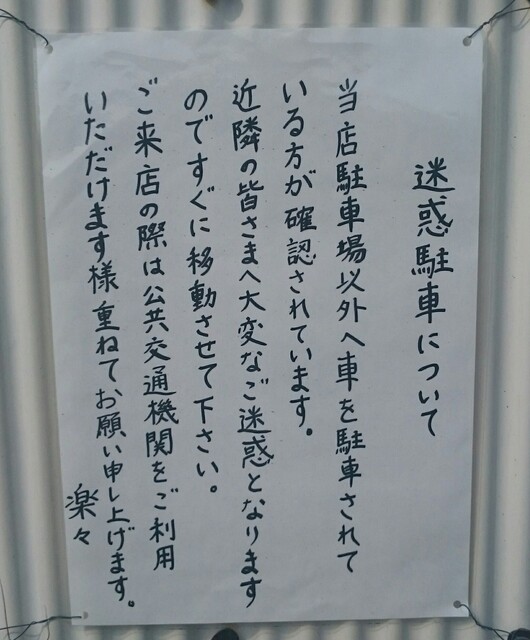 迷惑駐車について
当店駐車場以外へ車を駐車されて
いる方が確認されています。
近隣の皆さまへ大変なご迷惑となります
のですぐに移動させて下さい。
ご来店の際は公共交通機関をご利用
いただけます様重ねてお願い申し上げます。
楽々